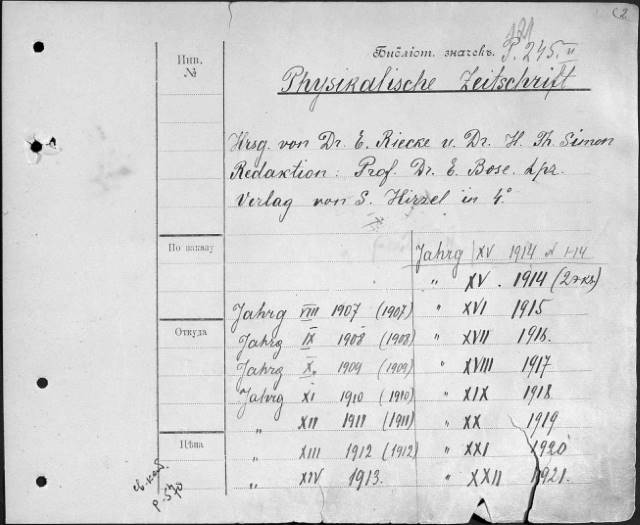 Инв. №
Библіот. значекъ. P. 245 II
121
Physikalische Zeitschrift
Hrsg. von Dr. E. Riecke u. Dr. H. Th. Simon
Redaktion: Prof. Dr. E. Bose. Lpz.
Verlag von S. Hirzel in 4°.
По заказу
Jahrg XV 1914 № 1-14
" XV. 1914 (2 экз)
Jahrg VIII 1907 (1907) " XVI 1915
Откуда
Jahrg IX 1908 (1908) " XVII 1916.
Jahrg X. 1909 (1909) " XVIII 1917
Jahrg XI 1910 (1910) " XIX 1918
" XII 1911 (1911) " XX 1919
Цѣна
" XIII 1912 (1912) " XXI 1920
" XIV 1913. " XXII 1921.